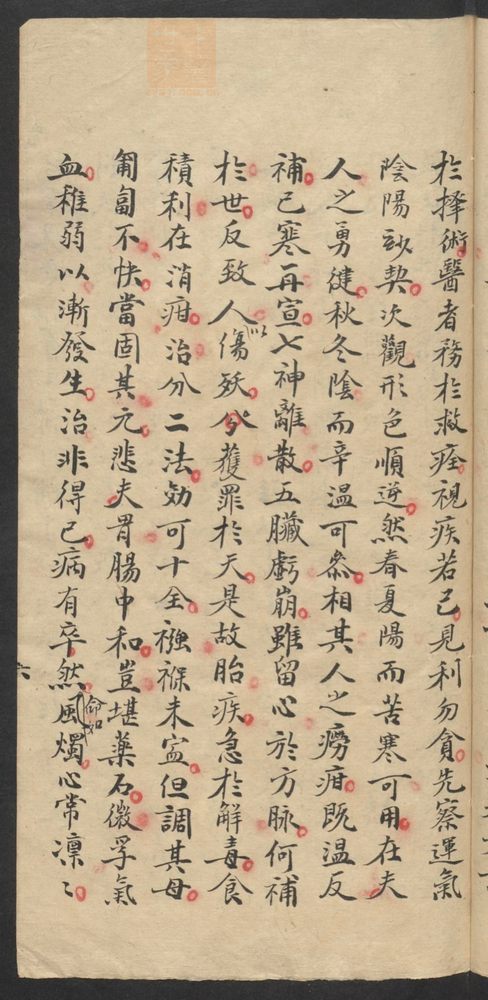 於擇術醫者務於救痊視疾若己見利勿貪先察運氣
陰陽訣契次觀形色順逆然春夏陽而苦寒可用在夫
人之勇健秋冬陰而辛溫可叅相其人之癆疳既溫反
補已寒再宣七神離散五臟虧崩雖留心於方脉何補
於世反致人以傷殀分獲罪於天是故胎疾急於解毒食
積利在消疳治分二法効可十全襁褓未宜但調其母
匍匐不快當固其元悲夫胃腸中和豈堪藥石微孚氣
血稚弱以漸發生治非得已病有卒然命如風燭心常凜〻
六